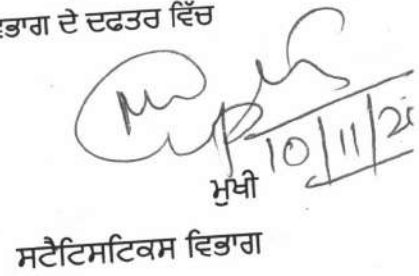 ਦੇ ਦਫਤਰ ਵਿੱਚ
10/11/2
ਮੁਖੀ
ਸਟੈਟਿਸਟਿਕਸ ਵਿਭਾਗ